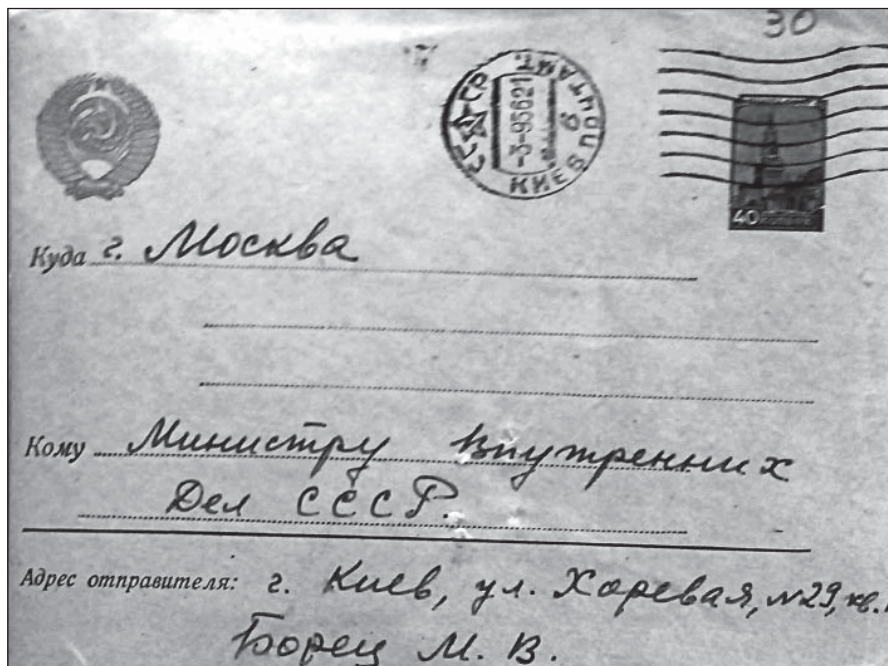 30
СССР
-3-95621
КИЕВ ПОЧТАМТ
6
40
Куда г. Москва
Кому Министру Внутренних
Дел СССР.
Адрес отправителя: г. Киев, ул. Хоревая, №29, кв.
Борец М. В.